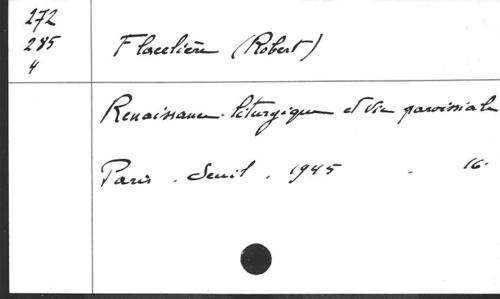 272
285
4
Flacelière (Robert)
Renaissance liturgique et vie paroissiale
Paris . Seuil . 1945 . 16.